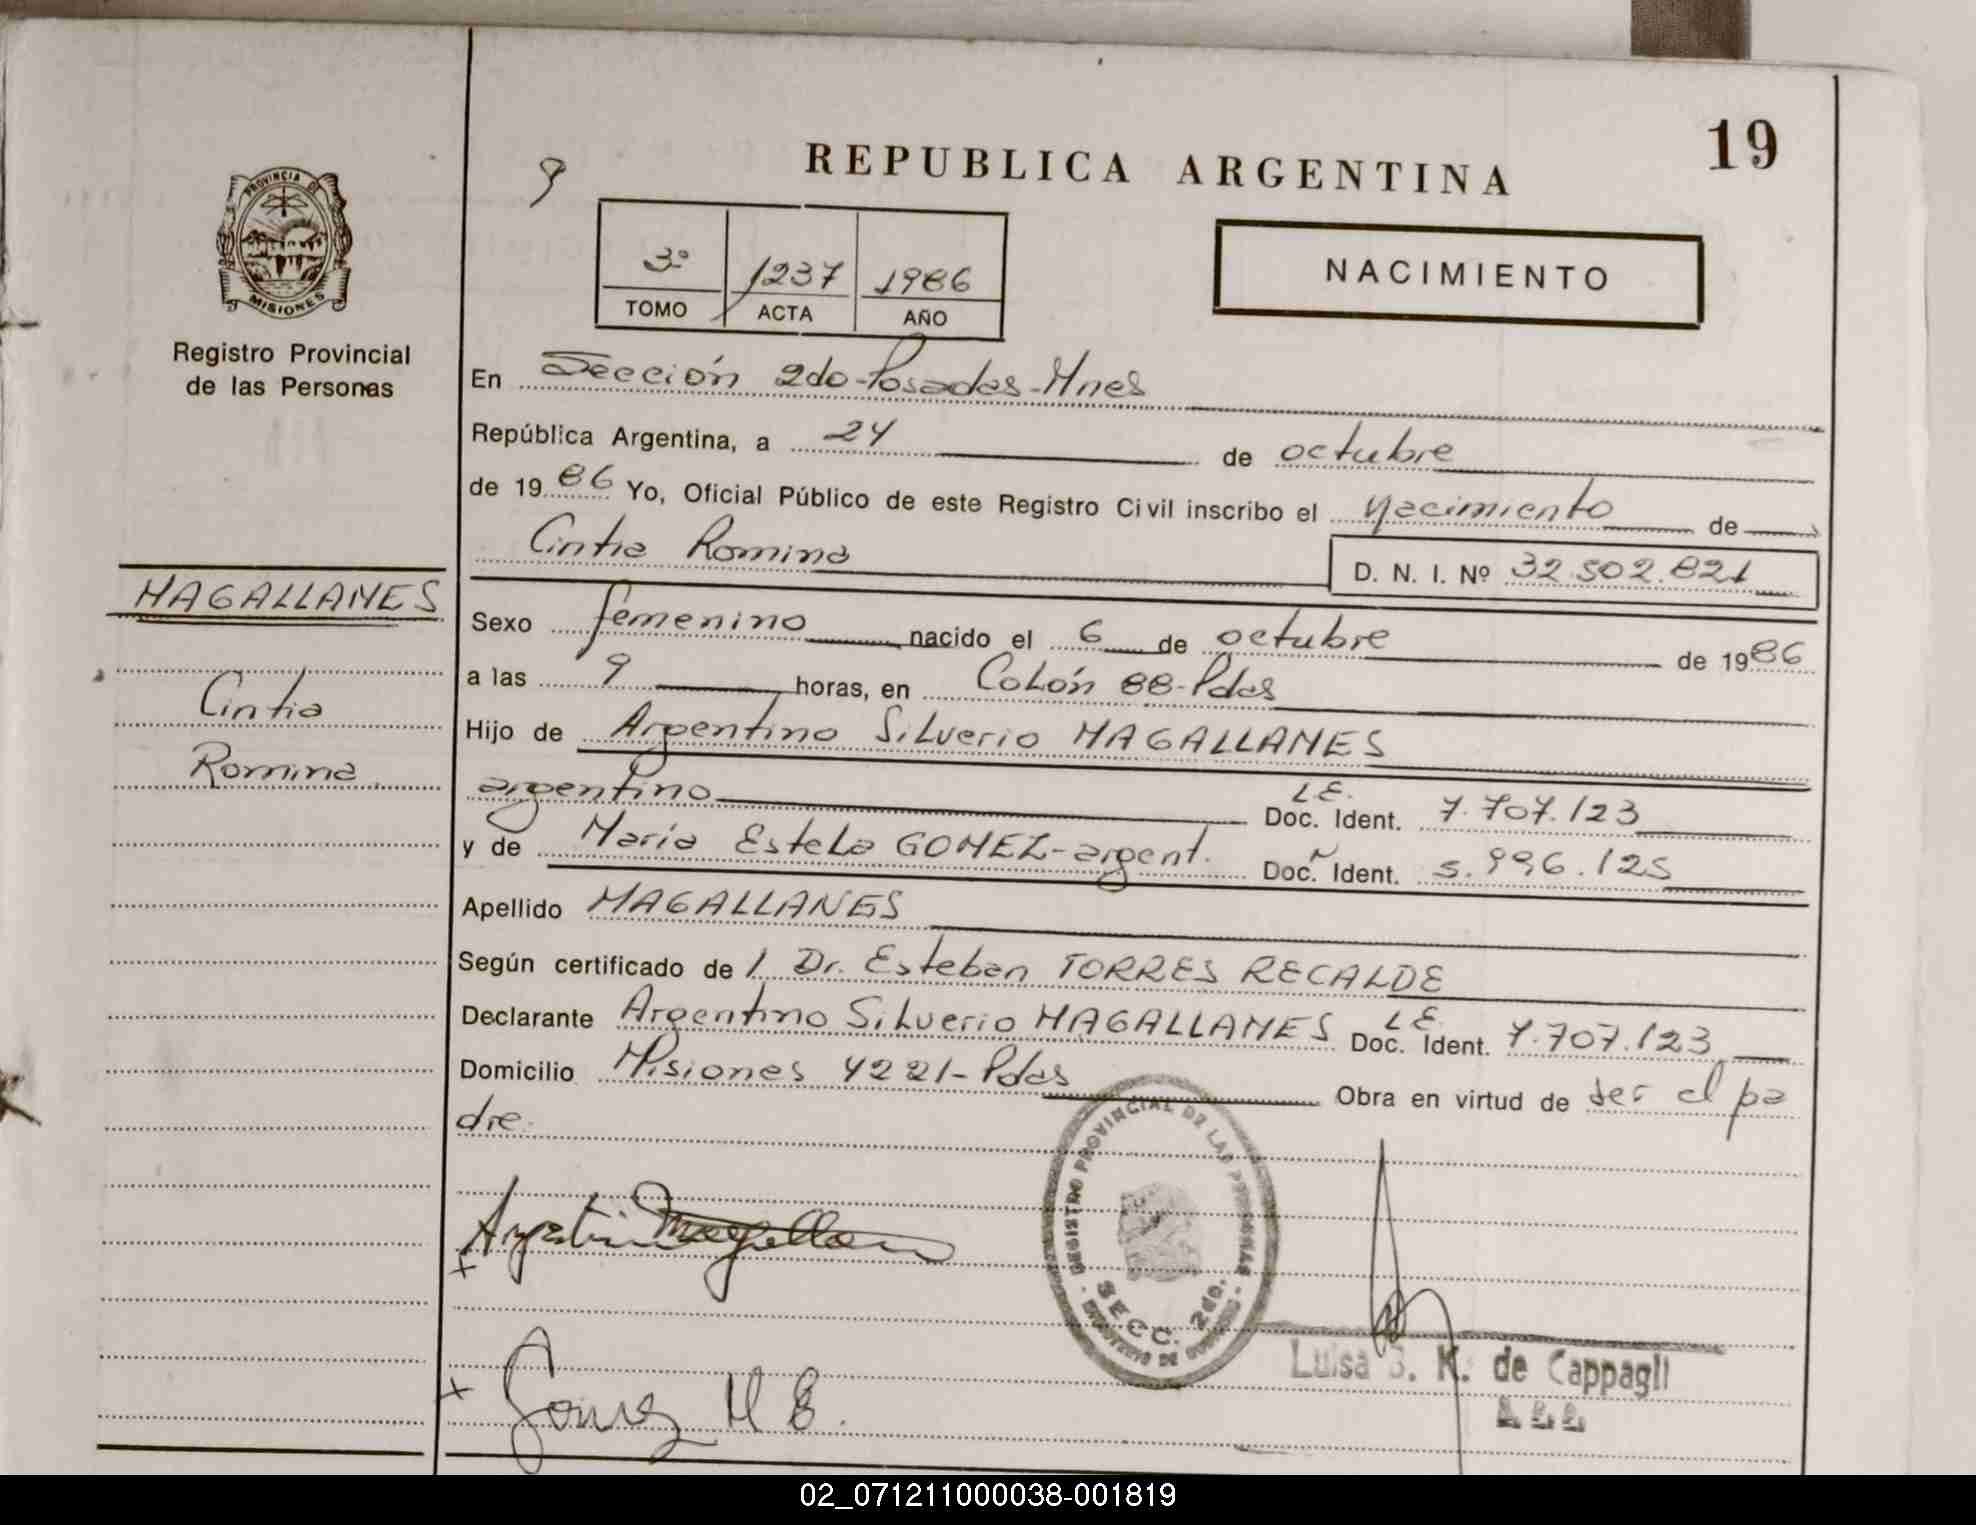 19
REPUBLICA ARGENTINA
9
PROVINCIA DE
MISIONES
Registro Provincial
de las Personas
3º 1237 1986
TOMO ACTA AÑO
NACIMIENTO
En Sección 2do-Posadas-Mnes
República Argentina, a 24 de octubre
de 1986 Yo, Oficial Público de este Registro Civil inscribo el nacimiento de
Cintia Romina D. N. I. Nº 32.502.821
MAGALLANES
Cintia
Romina
Sexo femenino nacido el 6 de octubre de 1986
a las 9 horas, en Colón 88-Pdas
Hijo de Argentino Silverio MAGALLANES
argentino L.E. Doc. Ident. 7.707.123
y de María Estela GOMEZ-argent. Doc. Ident. 5.996.125
Apellido MAGALLANES
Según certificado de l Dr. Esteban TORRES RECALDE
Declarante Argentino Silverio MAGALLANES L.E. Doc. Ident. 7.707.123
Domicilio Misiones 4221-Pdas Obra en virtud de ser el pa
dre.
REGISTRO PROVINCIAL DE LAS PERSONAS
SECC. 2do.
MINISTERIO DE GOBIERNO
x
x Gomez M E.
Luisa S. K. de Cappagli
02_071211000038-001819